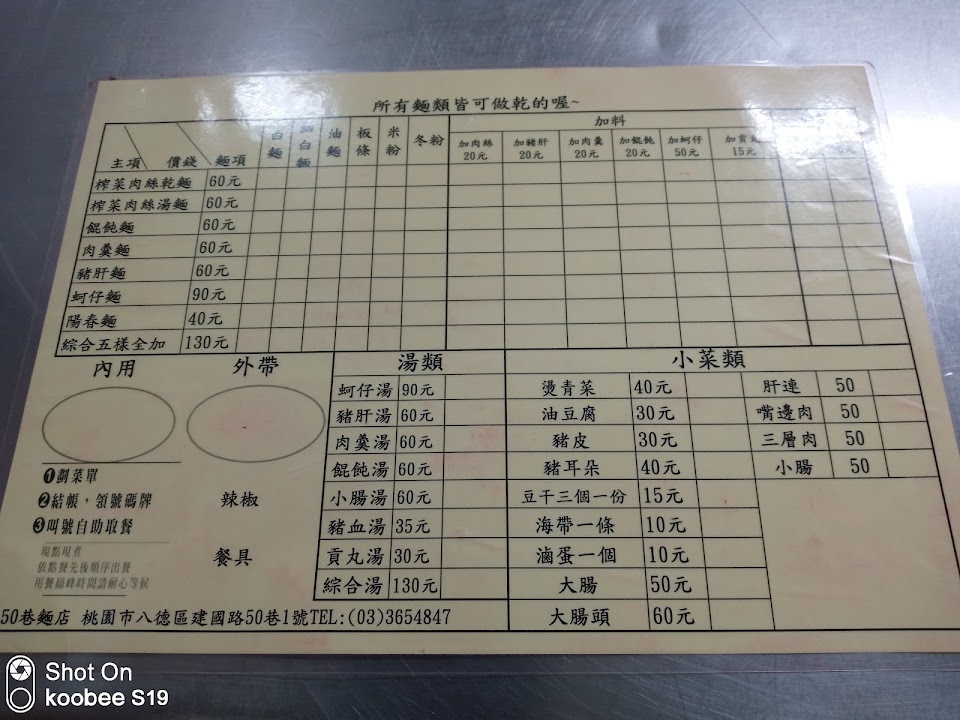 所有麵類皆可做乾的喔~
主項 價錢 麵項 白麵 白麵 油麵 板條 米粉 冬粉 加料
加肉絲20元 加豬肝20元 加肉羹20元 加餛飩20元 加蚵仔50元 加貢 15元
榨菜肉絲乾麵 60元
榨菜肉絲湯麵 60元
餛飩麵 60元
肉羹麵 60元
豬肝麵 60元
蚵仔麵 90元
陽春麵 40元
綜合五樣全加 130元
內用 外帶
❶劃菜單
❷結帳，領號碼牌
❸叫號自助取餐
現點現煮
依點餐先後順序出餐
用餐巔峰時間請耐心等候
辣椒
餐具
湯類
蚵仔湯 90元
豬肝湯 60元
肉羹湯 60元
餛飩湯 60元
小腸湯 60元
豬血湯 35元
貢丸湯 30元
綜合湯 130元
小菜類
燙青菜 40元 肝連 50
油豆腐 30元 嘴邊肉 50
豬皮 30元 三層肉 50
豬耳朵 40元 小腸 50
豆干三個一份 15元
海帶一條 10元
滷蛋一個 10元
大腸 50元
大腸頭 60元
50巷麵店 桃園市八德區建國路50巷1號TEL:(03)3654847
Shot On
koobee S19